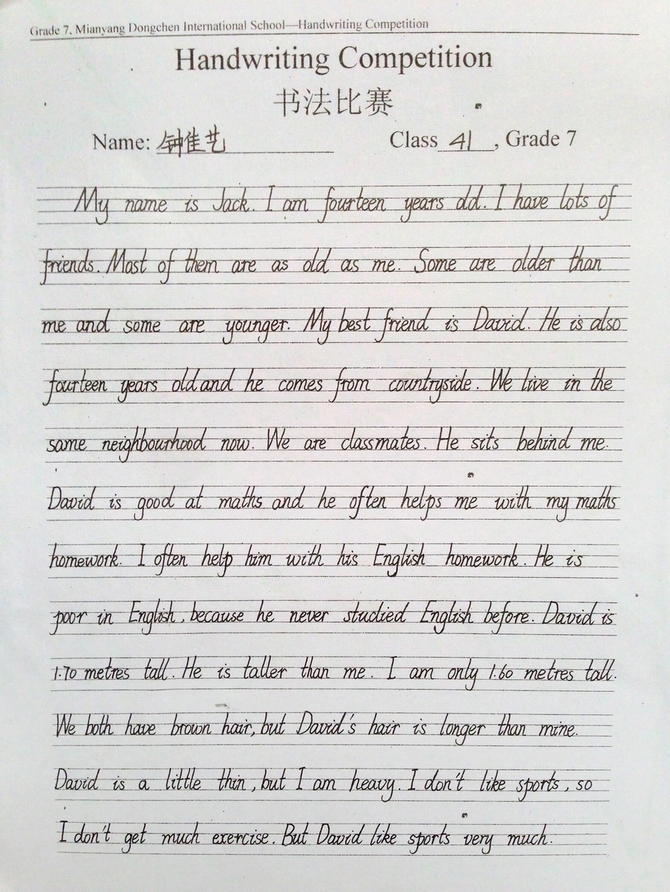 Grade 7, Mianyang Dongchen International School—Handwriting Competition
Handwriting Competition
书法比赛
Name: 钟佳艺 Class 41, Grade 7
My name is Jack. I am fourteen years old. I have lots of
friends. Most of them are as old as me. Some are older than
me and some are younger. My best friend is David. He is also
fourteen years old and he comes from countryside. We live in the
same neighbourhood now. We are classmates. He sits behind me.
David is good at maths and he often helps me with my maths
homework. I often help him with his English homework. He is
poor in English, because he never studied English before. David is
1.70 metres tall. He is taller than me. I am only 1.60 metres tall.
We both have brown hair, but David's hair is longer than mine.
David is a little thin, but I am heavy. I don't like sports, so
I don't get much exercise. But David like sports very much.